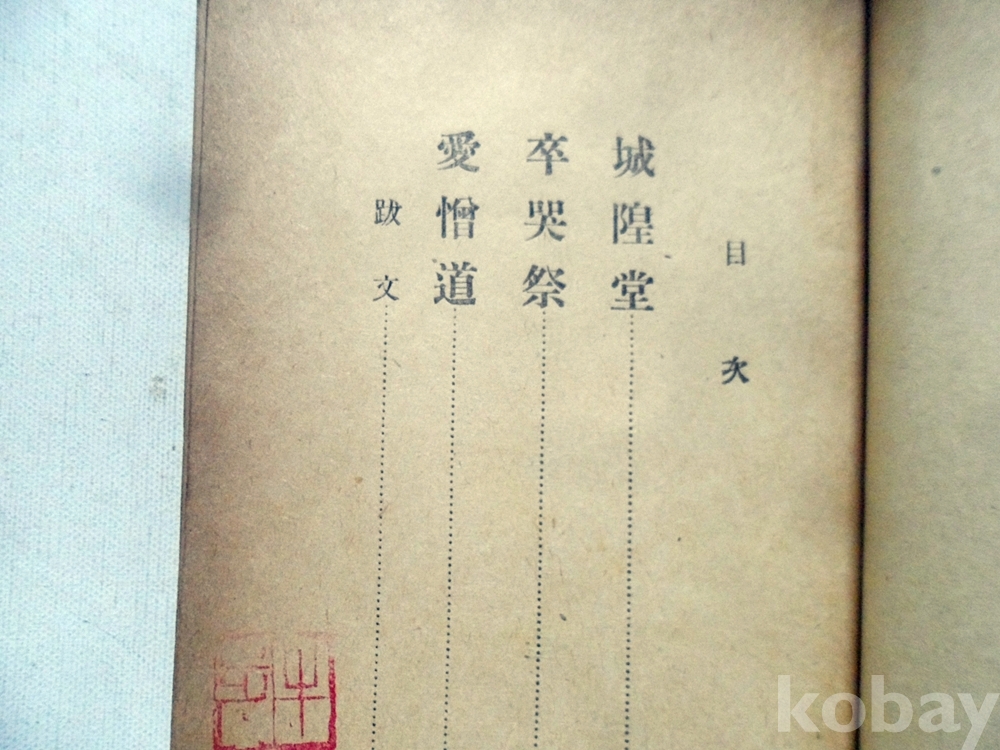 目次
城隍堂
卒哭祭
愛憎道
跋文
kobay